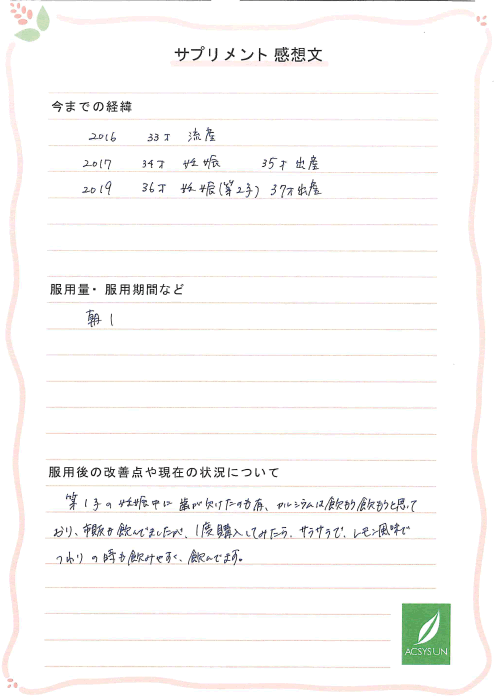 サプリメント 感想文
今までの経緯
2016 33才 流産
2017 34才 妊娠 35才 出産
2019 36才 妊娠(第2子) 37才出産
服用量・服用期間など
朝 1
服用後の改善点や現在の状況について
第1子の妊娠中に歯が欠けたのも有、カルシウムは飲もう飲もうと思って
おり、市販も飲んでましたが、1度購入してみたら、サラサラで、レモン風味で
つわりの時も飲みやすく、飲んでます。
ACSYSUN